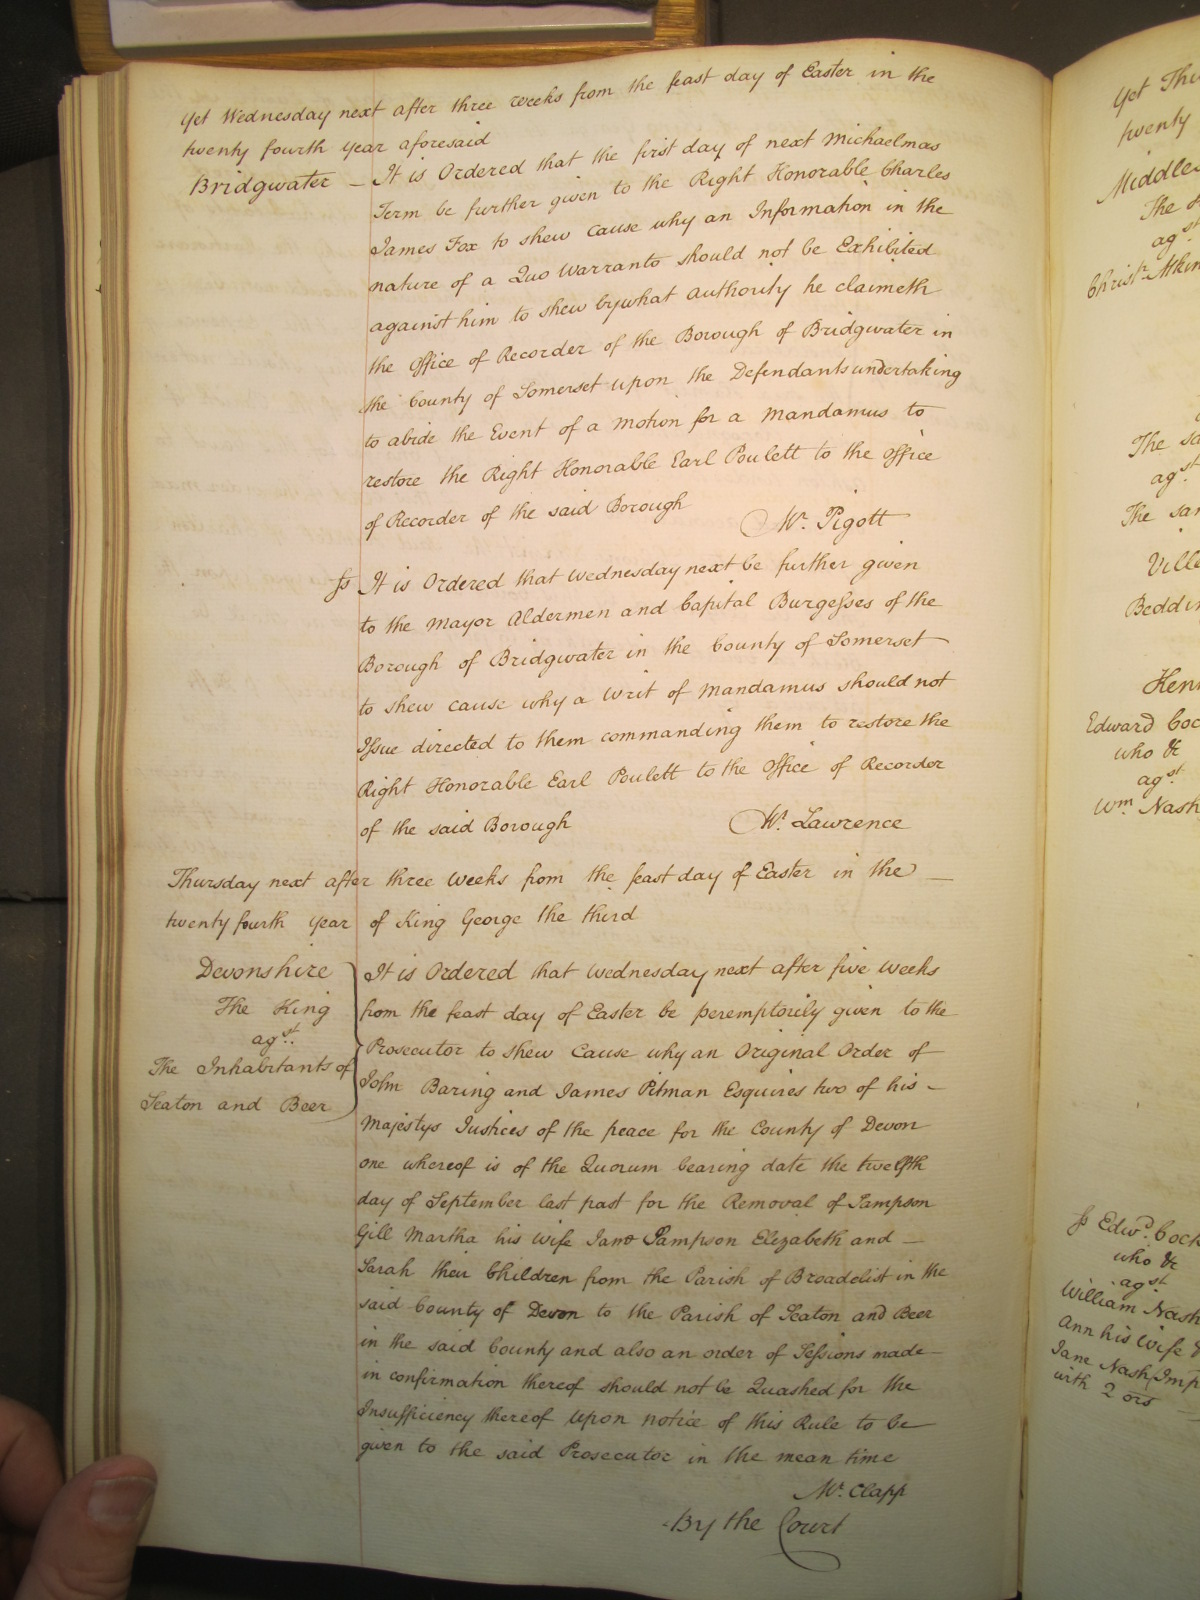 Yet Wednesday next after three weeks from the feast day of Easter in the
twenty fourth year aforesaid
Bridgwater — It is Ordered that the first day of next Michaelmas
Term be further given to the Right Honorable Charles
James Fox to shew cause why an Information in the
nature of a Quo Warranto should not be Exhibited
against him to shew by what authority he claimeth
the Office of Recorder of the Borough of Bridgwater in
the County of Somerset upon the Defendants undertaking
to abide the Event of a Motion for a Mandamus to
restore the Right Honorable Earl Poulett to the Office
of Recorder of the said Borough
Mr. Pigott
Ss It is Ordered that Wednesday next be further given
to the Mayor Aldermen and Capital Burgesses of the
Borough of Bridgwater in the County of Somerset
to shew cause why a Writ of Mandamus should not
Issue directed to them commanding them to restore the
Right Honorable Earl Poulett to the Office of Recorder
of the said Borough
Mr. Lawrence
Thursday next after three weeks from the feast day of Easter in the —
twenty fourth year of King George the third
Devonshire
The King
agst.
The Inhabitants of
Seaton and Beer
It is Ordered that Wednesday next after five weeks
from the feast day of Easter be peremptorily given to the
Prosecutor to shew Cause why an Original Order of
John Baring and James Pitman Esquires two of his –
Majestys Justices of the peace for the County of Devon
one whereof is of the Quorum bearing date the twelfth
day of September last past for the Removal of Sampson
Gill Martha his wife Jane Sampson Elizabeth and —
Sarah their Children from the Parish of Broadclist in the
said County of Devon to the Parish of Seaton and Beer
in the said County and also an order of Sessions made
in confirmation thereof should not be Quashed for the
Insufficiency thereof upon notice of this Rule to be
given to the said Prosecutor in the mean time
Mr. Clapp
By the Court
Yet
twenty
The
agst
Christr. Atkin
The
agst.
The
Edward
who &c
agst.
Wm. Nash
Ss Edwd. Cock
who &c
agst.
William Nash
Ann his wife
Jane Nash
with 2 ors